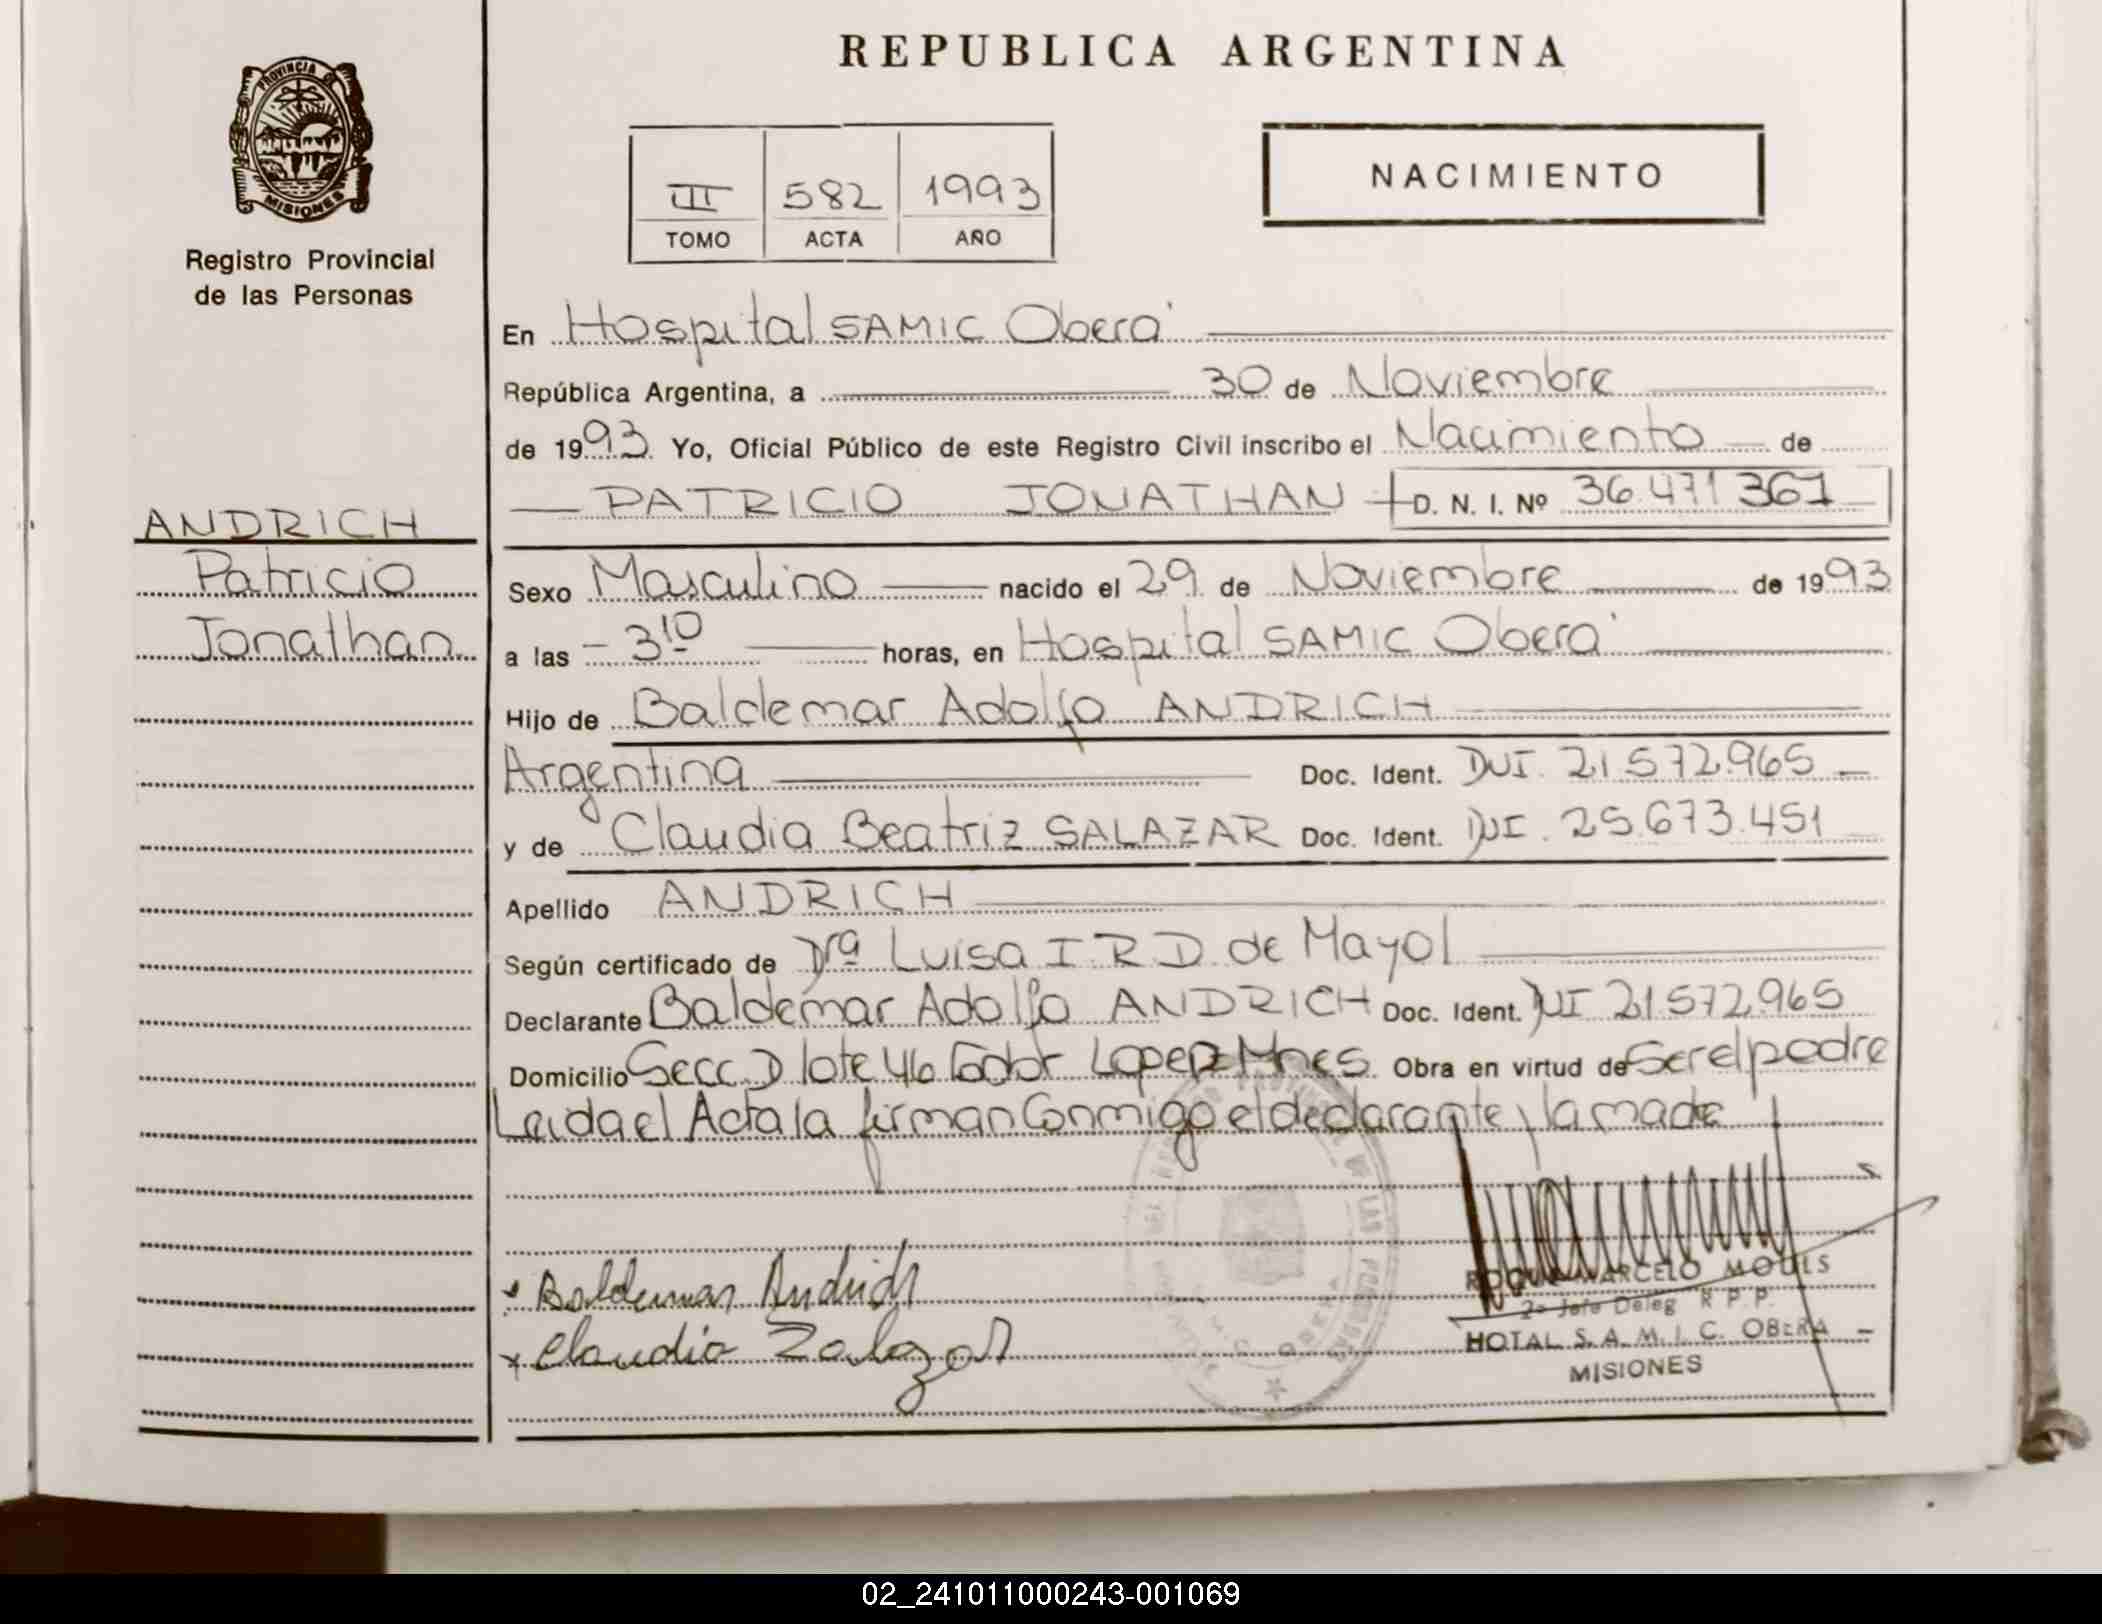 REPUBLICA ARGENTINA
PROVINCIA DE
MISIONES
Registro Provincial
de las Personas
III 582 1993
TOMO ACTA AÑO
NACIMIENTO
En Hospital SAMIC Oberá
República Argentina, a 30 de Noviembre
de 1993 Yo, Oficial Público de este Registro Civil inscribo el Nacimiento de
PATRICIO JONATHAN D. N. I. Nº 36.471 361
ANDRICH
Patricio
Jonathan
Sexo Masculino nacido el 29 de Noviembre de 1993
a las 3 10 horas, en Hospital SAMIC Oberá
Hijo de Baldemar Adolfo ANDRICH
Argentina Doc. Ident. DNI. 21.572.965
y de Claudia Beatriz SALAZAR Doc. Ident. DNI. 25.673.451
Apellido ANDRICH
Según certificado de Drª Luisa I. R. D. de Mayol
Declarante Baldemar Adolfo ANDRICH Doc. Ident. DNI 21.572.965
Domicilio Secc. D lote 46 Lopez Mnes. Obra en virtud de Ser el padre
Leida el Acta la firman Conmigo el declarante y la madre
Baldemar Andrich
Claudia Zalazar
MARCELO
2º Jefe Deleg R. P. P.
HOTAL S. A. M. I. C. OBERA
MISIONES
02_241011000243-001069